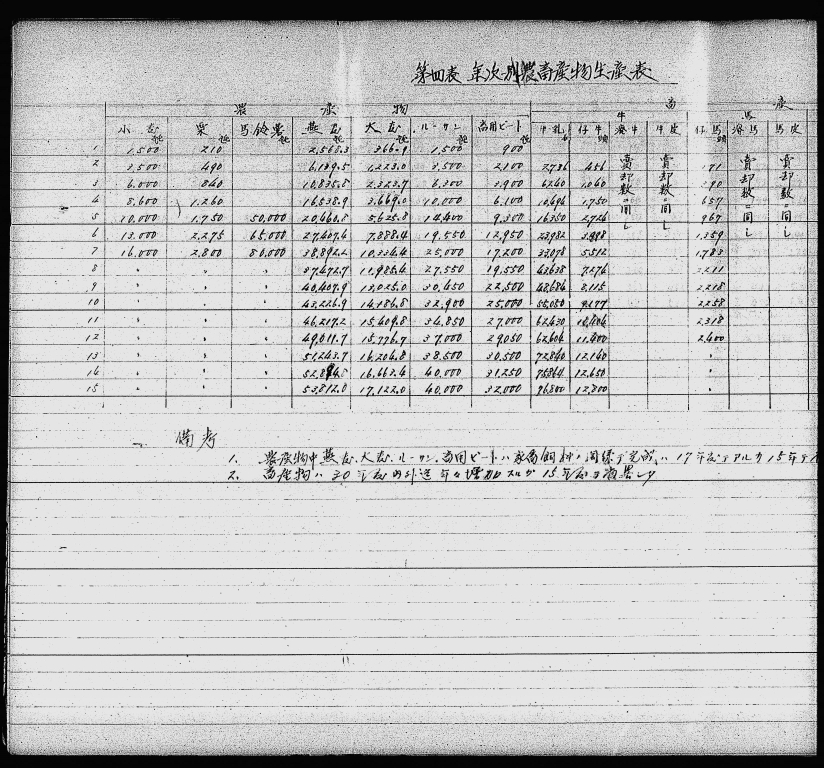 第四表 年次別農畜産物生産表
農 産 物 畜 産
牛 馬
小麦 粟 馬鈴薯 燕麦 大麦 ルーサン 畜用ビート 牛乳 仔牛 廃牛 牛皮 仔馬 廃馬 馬皮
瓩 瓩 瓩 瓩 瓩 瓩 頭 頭
1 1,500 210 2,568.3 366.9 1,500 900
2 3,500 490 6,139.5 1,223.0 3,500 2,100 2736 456 賣却数ニ同シ 賣却数ニ同シ 171 賣却数ニ同シ 賣却数ニ同シ
3 6,000 840 10,835.8 2,323.7 6,300 3,900 6240 1,040 390
4 8,600 1,260 16,538.9 3,669.0 10,000 6,100 10,496 1,750 657
5 10,000 1,750 50,000 20,460.8 5,625.8 14,400 9,300 16350 2,726 967
6 13,000 2,275 65,000 27,407.6 7,888.4 19,550 12,950 23,982 1,359
7 16,000 2,800 80,000 38,892.2 10,334.4 25,000 17,200 33,078 5,512 1,783
8 〃 〃 〃 37,472.7 11,985.4 27,550 19,550 43638 7,276 2211
9 〃 〃 〃 40,407.9 13,025.0 30,450 22,500 48,686 8,115 2,218
10 〃 〃 〃 43,226.9 14,186.8 32,900 25,000 55,050 9,177 2258
11 〃 〃 〃 46,217.2 15,409.8 34,850 27,000 62430 10,404 2,318
12 〃 〃 〃 49,011.7 15,776.7 37,000 29,050 62,604 11,400 2,400
13 〃 〃 〃 51,243.7 16,206.8 38,500 30,500 72,840 12,140 〃
14 〃 〃 〃 16,663.4 40,000 31,250 75,864 12,650 〃
15 〃 〃 〃 53,812.0 17,122.0 40,000 32,000 76,800 12,800 〃
備考
1. 農産物中燕麦、大麦、ルーサン、畜用ビートハ家畜飼料ノ関係デ完成ハ17年度デアルガ15年デ
2. 畜産物ハ20年度内外迄年々増加スルガ15年度